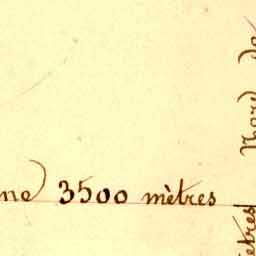 ne 3500 mètres
Nord de
ètres